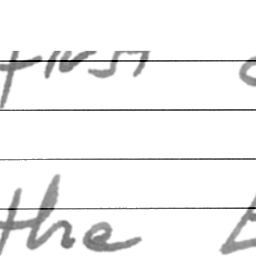 first
the